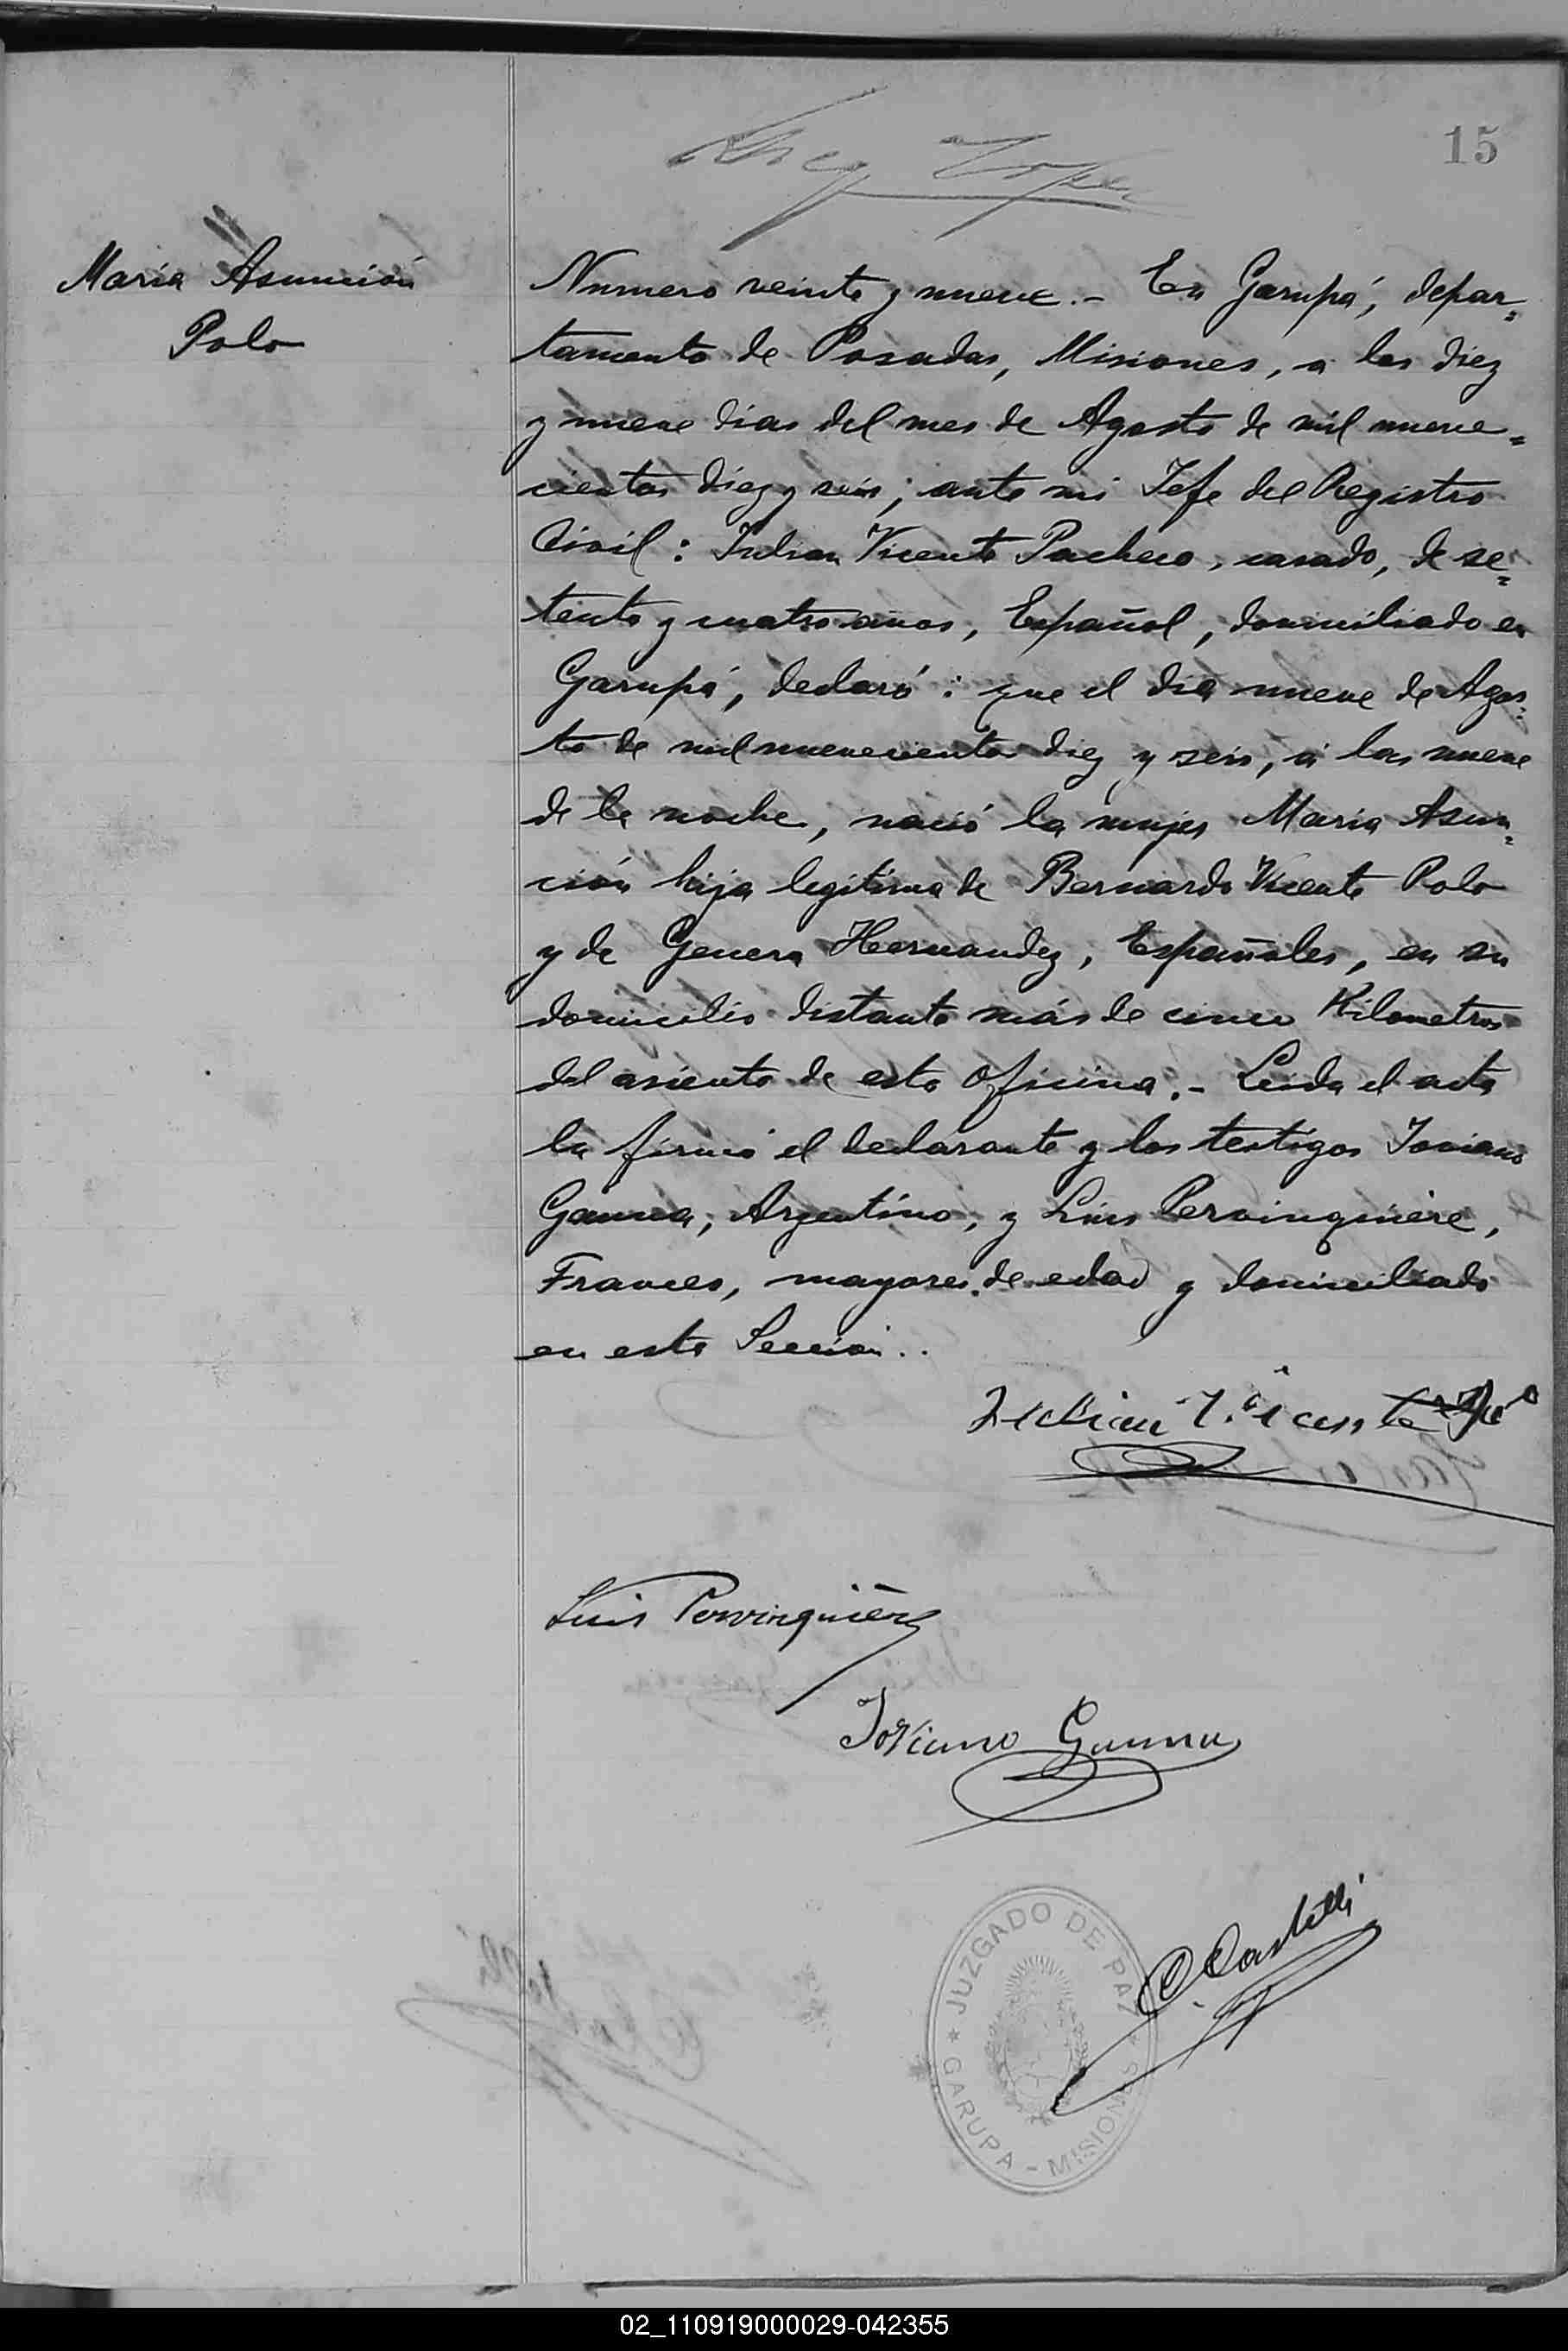 15
María Asunción
Polo
Numero veinte y nueve.- En Garupá, depar=
tamento de Posadas, Misiones, a los diez
y nueve dias del mes de Agosto de mil nueve=
cientos diez y seis; ante mi Jefe del Registro
Civil: Julian Vicente Pacheco, casado, de se=
tenta y cuatro años, Español, domiciliado en
Garupá, declaró: que el dia nueve de Agos=
to de mil nuevecientos diez y seis, á las nueve
de la noche, nació la mujer María Asun=
ción hija legitima de Bernardo Vicente Polo
y de Genera Hernandez, Españoles, en su
domicilio distante más de cinco Kilometros
del asiento de esta oficina.- Leida el acta
la firmó el declarante y los testigos Joviano
Gauna, Argentino, y Luis Pervinquière,
Frances, mayores de edad y domiciliado
en esta Sección..
Julian Vicente
Luis Pervinquière
Joviano Gauna
C. Castelli
JUZGADO DE PAZ
GARUPA - MISIONES
02_110919000029-042355